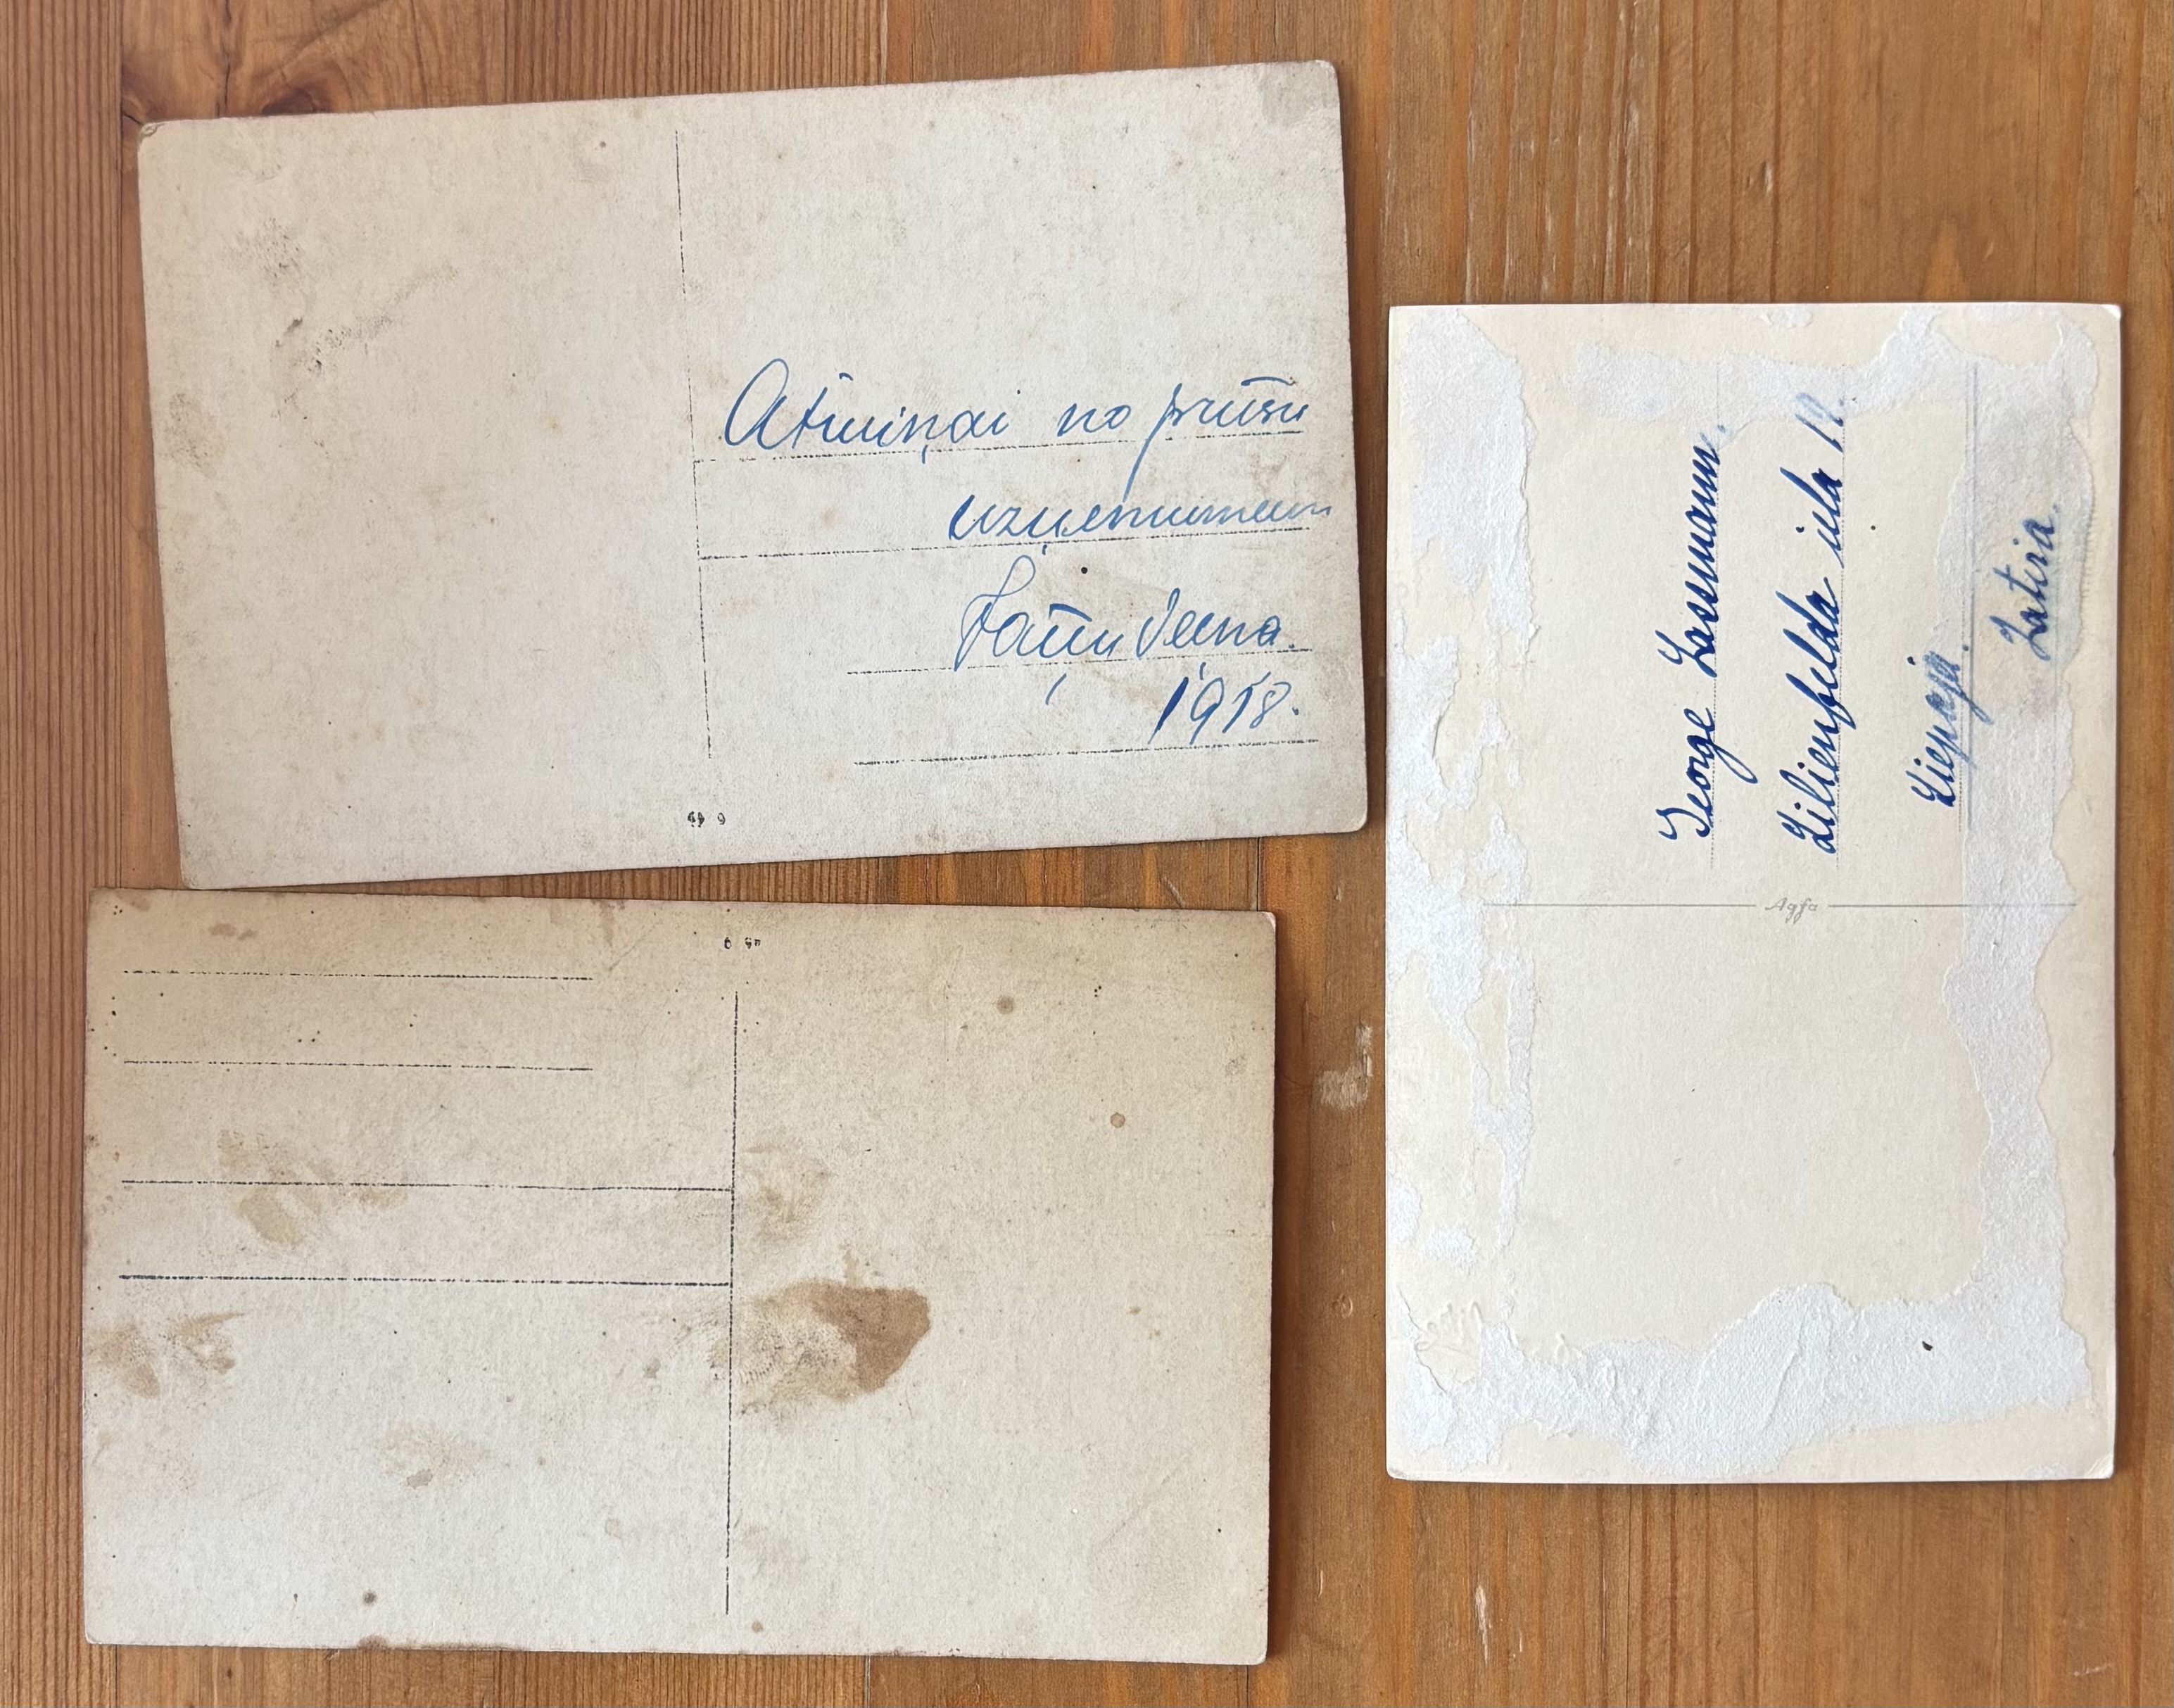 Atmiņai no prūšu
uzņēmumem
Jāņu Vecna.
1918.
George Lassmann.
Lilienfelda iela 12.
Liepaja.
Latvia.
Agfa